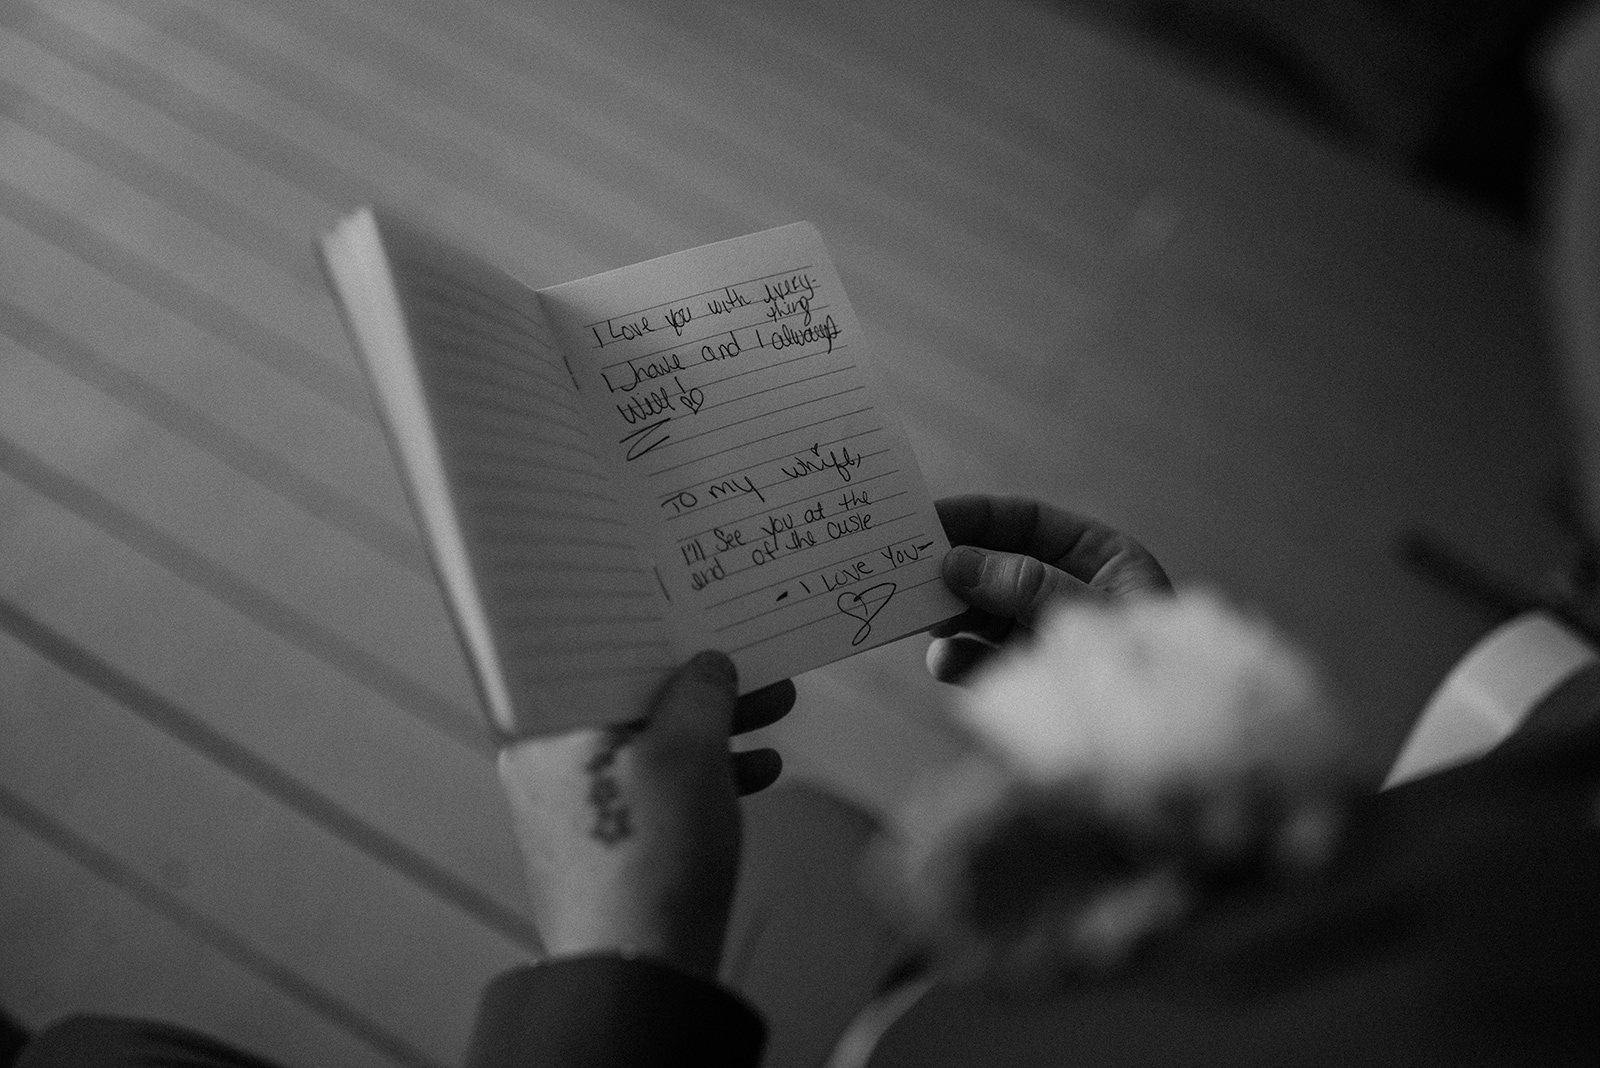 I Love you with every-
thing
I have and I always
will!
To my wife,
I'll see you at the
end of the aisle
- I LOVE YOU -